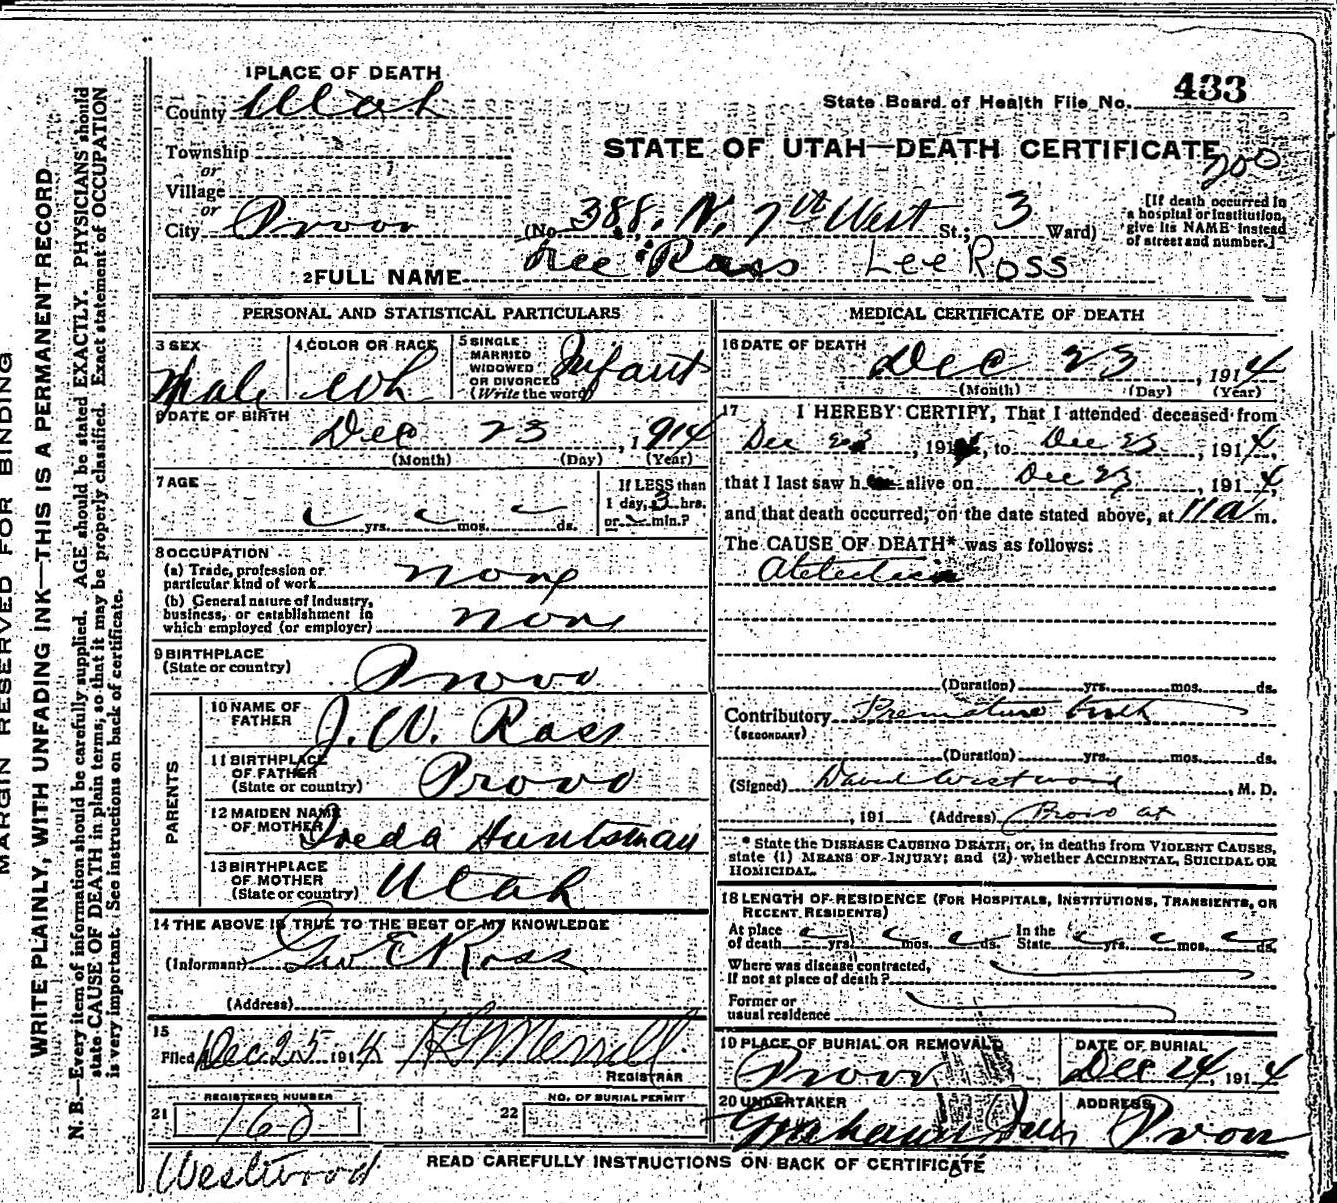 433
State Board of Health File No.
STATE OF UTAH—DEATH CERTIFICATE
200
1 PLACE OF DEATH
County Utah
Township
or
Village
or
City Provo (No. 388. N. 7th West St.; 3 Ward)
[If death occurred in
a hospital or institution,
give its NAME instead
of street and number.]
2 FULL NAME Lee Ross Lee Ross
PERSONAL AND STATISTICAL PARTICULARS
3 SEX Male
4 COLOR OR RACE Wh
5 SINGLE
MARRIED
WIDOWED
OR DIVORCED
(Write the word) Infant
6 DATE OF BIRTH
Dec 23, 1914
(Month) (Day) (Year)
7 AGE
yrs. mos. ds.
If LESS than
1 day, 3 hrs.
or min.?
8 OCCUPATION
(a) Trade, profession or
particular kind of work none
(b) General nature of industry,
business, or establishment in
which employed (or employer) none
9 BIRTHPLACE
(State or country) Provo
PARENTS
10 NAME OF
FATHER J. W. Ross
11 BIRTHPLACE
OF FATHER
(State or country) Provo
12 MAIDEN NAME
OF MOTHER Huntsman
13 BIRTHPLACE
OF MOTHER
(State or country) Utah
14 THE ABOVE IS TRUE TO THE BEST OF MY KNOWLEDGE
(Informant) Geo E Ross
(Address)
15
Filed Dec. 25 1914 Merrill
REGISTRAR
21 REGISTERED NUMBER
160
22 NO. OF BURIAL PERMIT
Westwood
MEDICAL CERTIFICATE OF DEATH
16 DATE OF DEATH
Dec 23, 1914
(Month) (Day) (Year)
17 I HEREBY CERTIFY, That I attended deceased from
Dec 23, 1914, to Dec 23, 1914,
that I last saw h alive on Dec 23, 1914,
and that death occurred, on the date stated above, at 11 a m.
The CAUSE OF DEATH* was as follows:
(Duration) yrs. mos. ds.
Contributory Premature birth
(SECONDARY)
(Duration) yrs. mos. ds.
(Signed) David Westwood, M. D.
, 191 (Address) Provo
* State the DISEASE CAUSING DEATH, or, in deaths from VIOLENT CAUSES,
state (1) MEANS OF INJURY; and (2) whether ACCIDENTAL, SUICIDAL OR
HOMICIDAL.
18 LENGTH OF RESIDENCE (FOR HOSPITALS, INSTITUTIONS, TRANSIENTS, OR
RECENT RESIDENTS)
At place
of death yrs. mos. ds. In the
State yrs. mos. ds.
Where was disease contracted,
if not at place of death?
Former or
usual residence
19 PLACE OF BURIAL OR REMOVAL
Provo
DATE OF BURIAL
Dec 24, 1914
20 UNDERTAKER
ADDRESS
Provo
READ CAREFULLY INSTRUCTIONS ON BACK OF CERTIFICATE
MARGIN RESERVED FOR BINDING
WRITE PLAINLY, WITH UNFADING INK—THIS IS A PERMANENT RECORD
N. B.—Every item of information should be carefully supplied. AGE should be stated EXACTLY. PHYSICIANS should
state CAUSE OF DEATH in plain terms, so that it may be properly classified. Exact statement of OCCUPATION
is very important. See instructions on back of certificate.